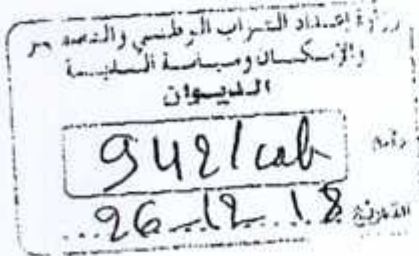 وزارة إعداد التراب الوطني والتعمير
والإسكان وسياسة المدينة
الديوان
رقم 942/cab
التاريخ 26-12-18